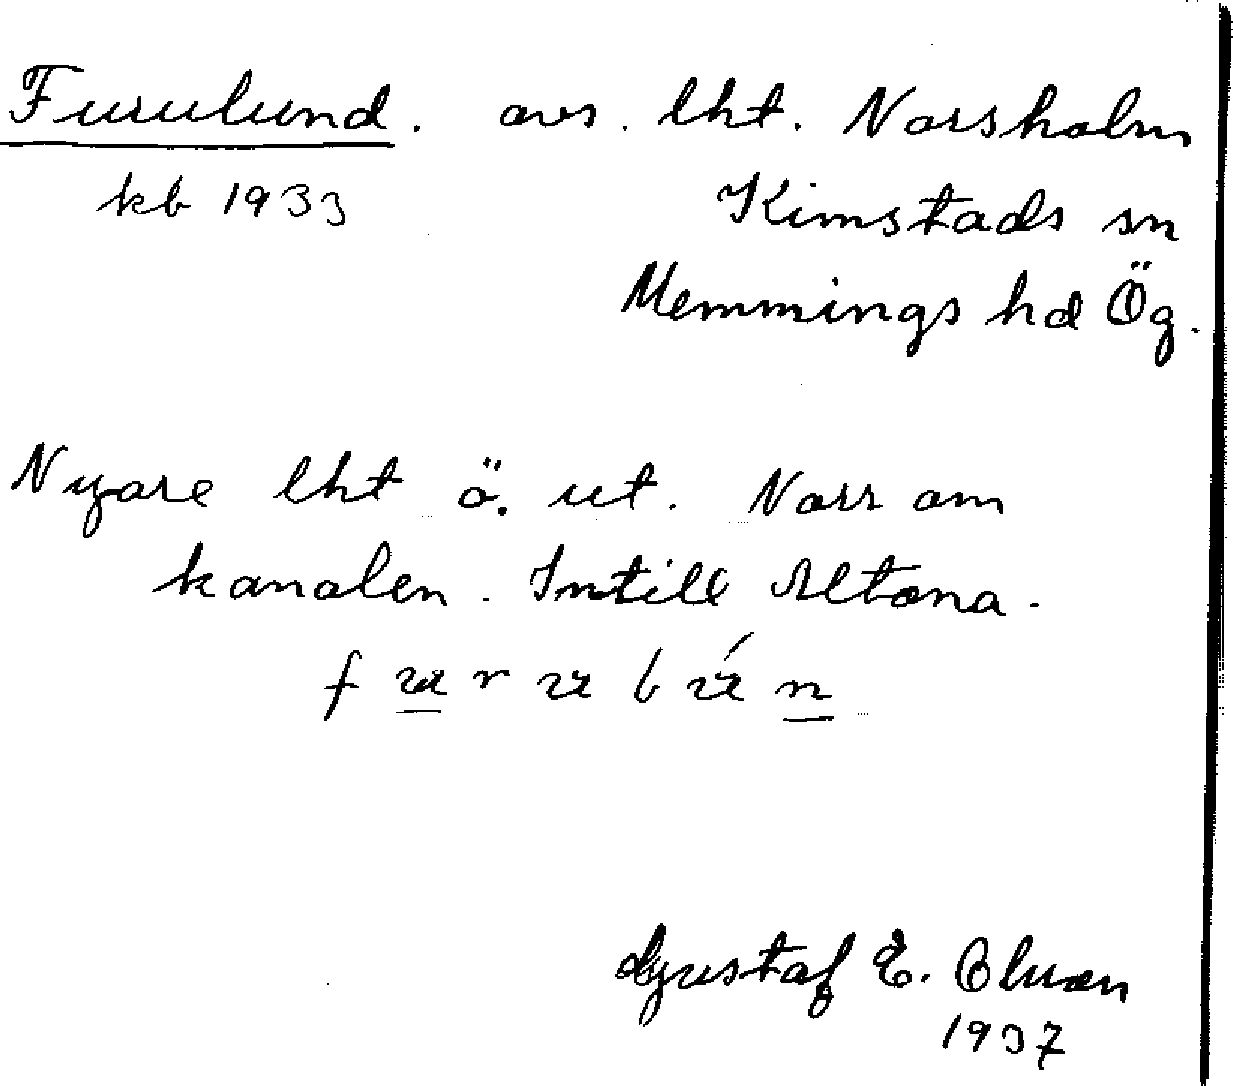 Furulund. avs. lht. Norsholm
kb 1933
Kimstads sn
Memmings hd Ög.
Nyare lht ö. ut. Norr om
kanalen. Intill Altona.
Gustaf E.
1937